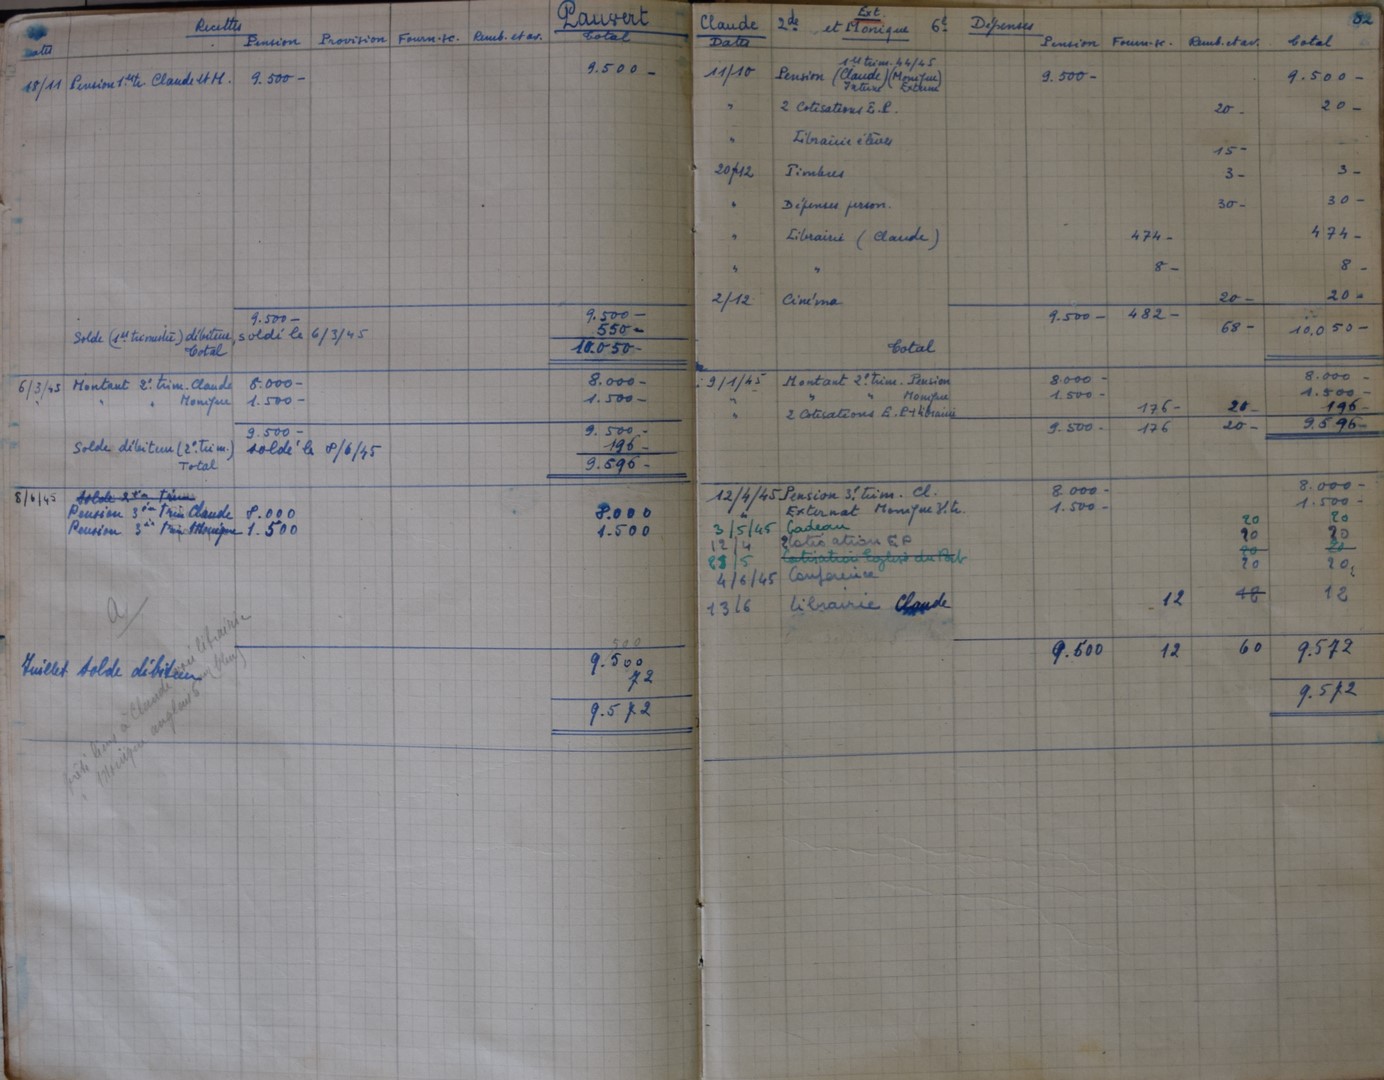 Recettes
Pauvert
Dates Pension Provision Fourn. sc. Remb. et av. Total
18/11 Pension 1er tr. Claude et M. 9.500 - 9.500 -
9.500 - 9.500 -
Solde (1er trimestre) débiteur, soldé le 6/3/45 550 -
Total 10.050 -
6/3/45 Montant 2e trim. Claude 8.000 - 8.000 -
" " " Monique 1.500 - 1.500 -
9.500 - 9.500 -
Solde débiteur (2e trim.) soldé le 8/6/45 196 -
Total 9.696 -
8/6/45 Solde 2e Trim
Pension 3e Trim Claude 8.000 8.000
Pension 3e Trim Monique 1.500 1.500
a
500
9.500
Juillet solde débiteur 72
9.572
prêté livres à Claude librairie
Monique anglais (bleu)
Claude 2de et Monique Ext. 6e Dépenses 52
Dates Pension Fourn. sc. Remb. et av. Total
1er trim. 44/45
11/10 Pension (Claude) (Monique) 9.500 - 9.500 -
Interne Externe
" 2 Cotisations E.L. 20 - 20 -
" Librairie élèves 15 -
20/12 Timbres 3 - 3 -
" Dépenses person. 30 - 30 -
" Librairie (Claude) 474 - 474 -
" " 8 - 8 -
2/12 Cinéma 20 - 20 -
9.500 - 482 - 68 - 10.050 -
Total
9/1/45 Montant 2e trim. Pension 8.000 - 8.000 -
" " " Monique 1.500 - 1.500 -
" 2 Cotisations E.L. + librairie 176 - 20 - 196 -
9.500 - 176 20 - 9.696 -
12/4/45 Pension 3e trim. Cl. 8.000 - 8.000 -
" Externat Monique 3e tr. 1.500 - 1.500 -
3/5/45 Cadeau 20 20
12/4 2 Cotisation E.P 20 20
28/5 Cotisation Eglise du Port 20 20
4/6/45 Conférence 20 20
13/6 Librairie Claude 12 12 12
9.500 12 60 9.572
9.572